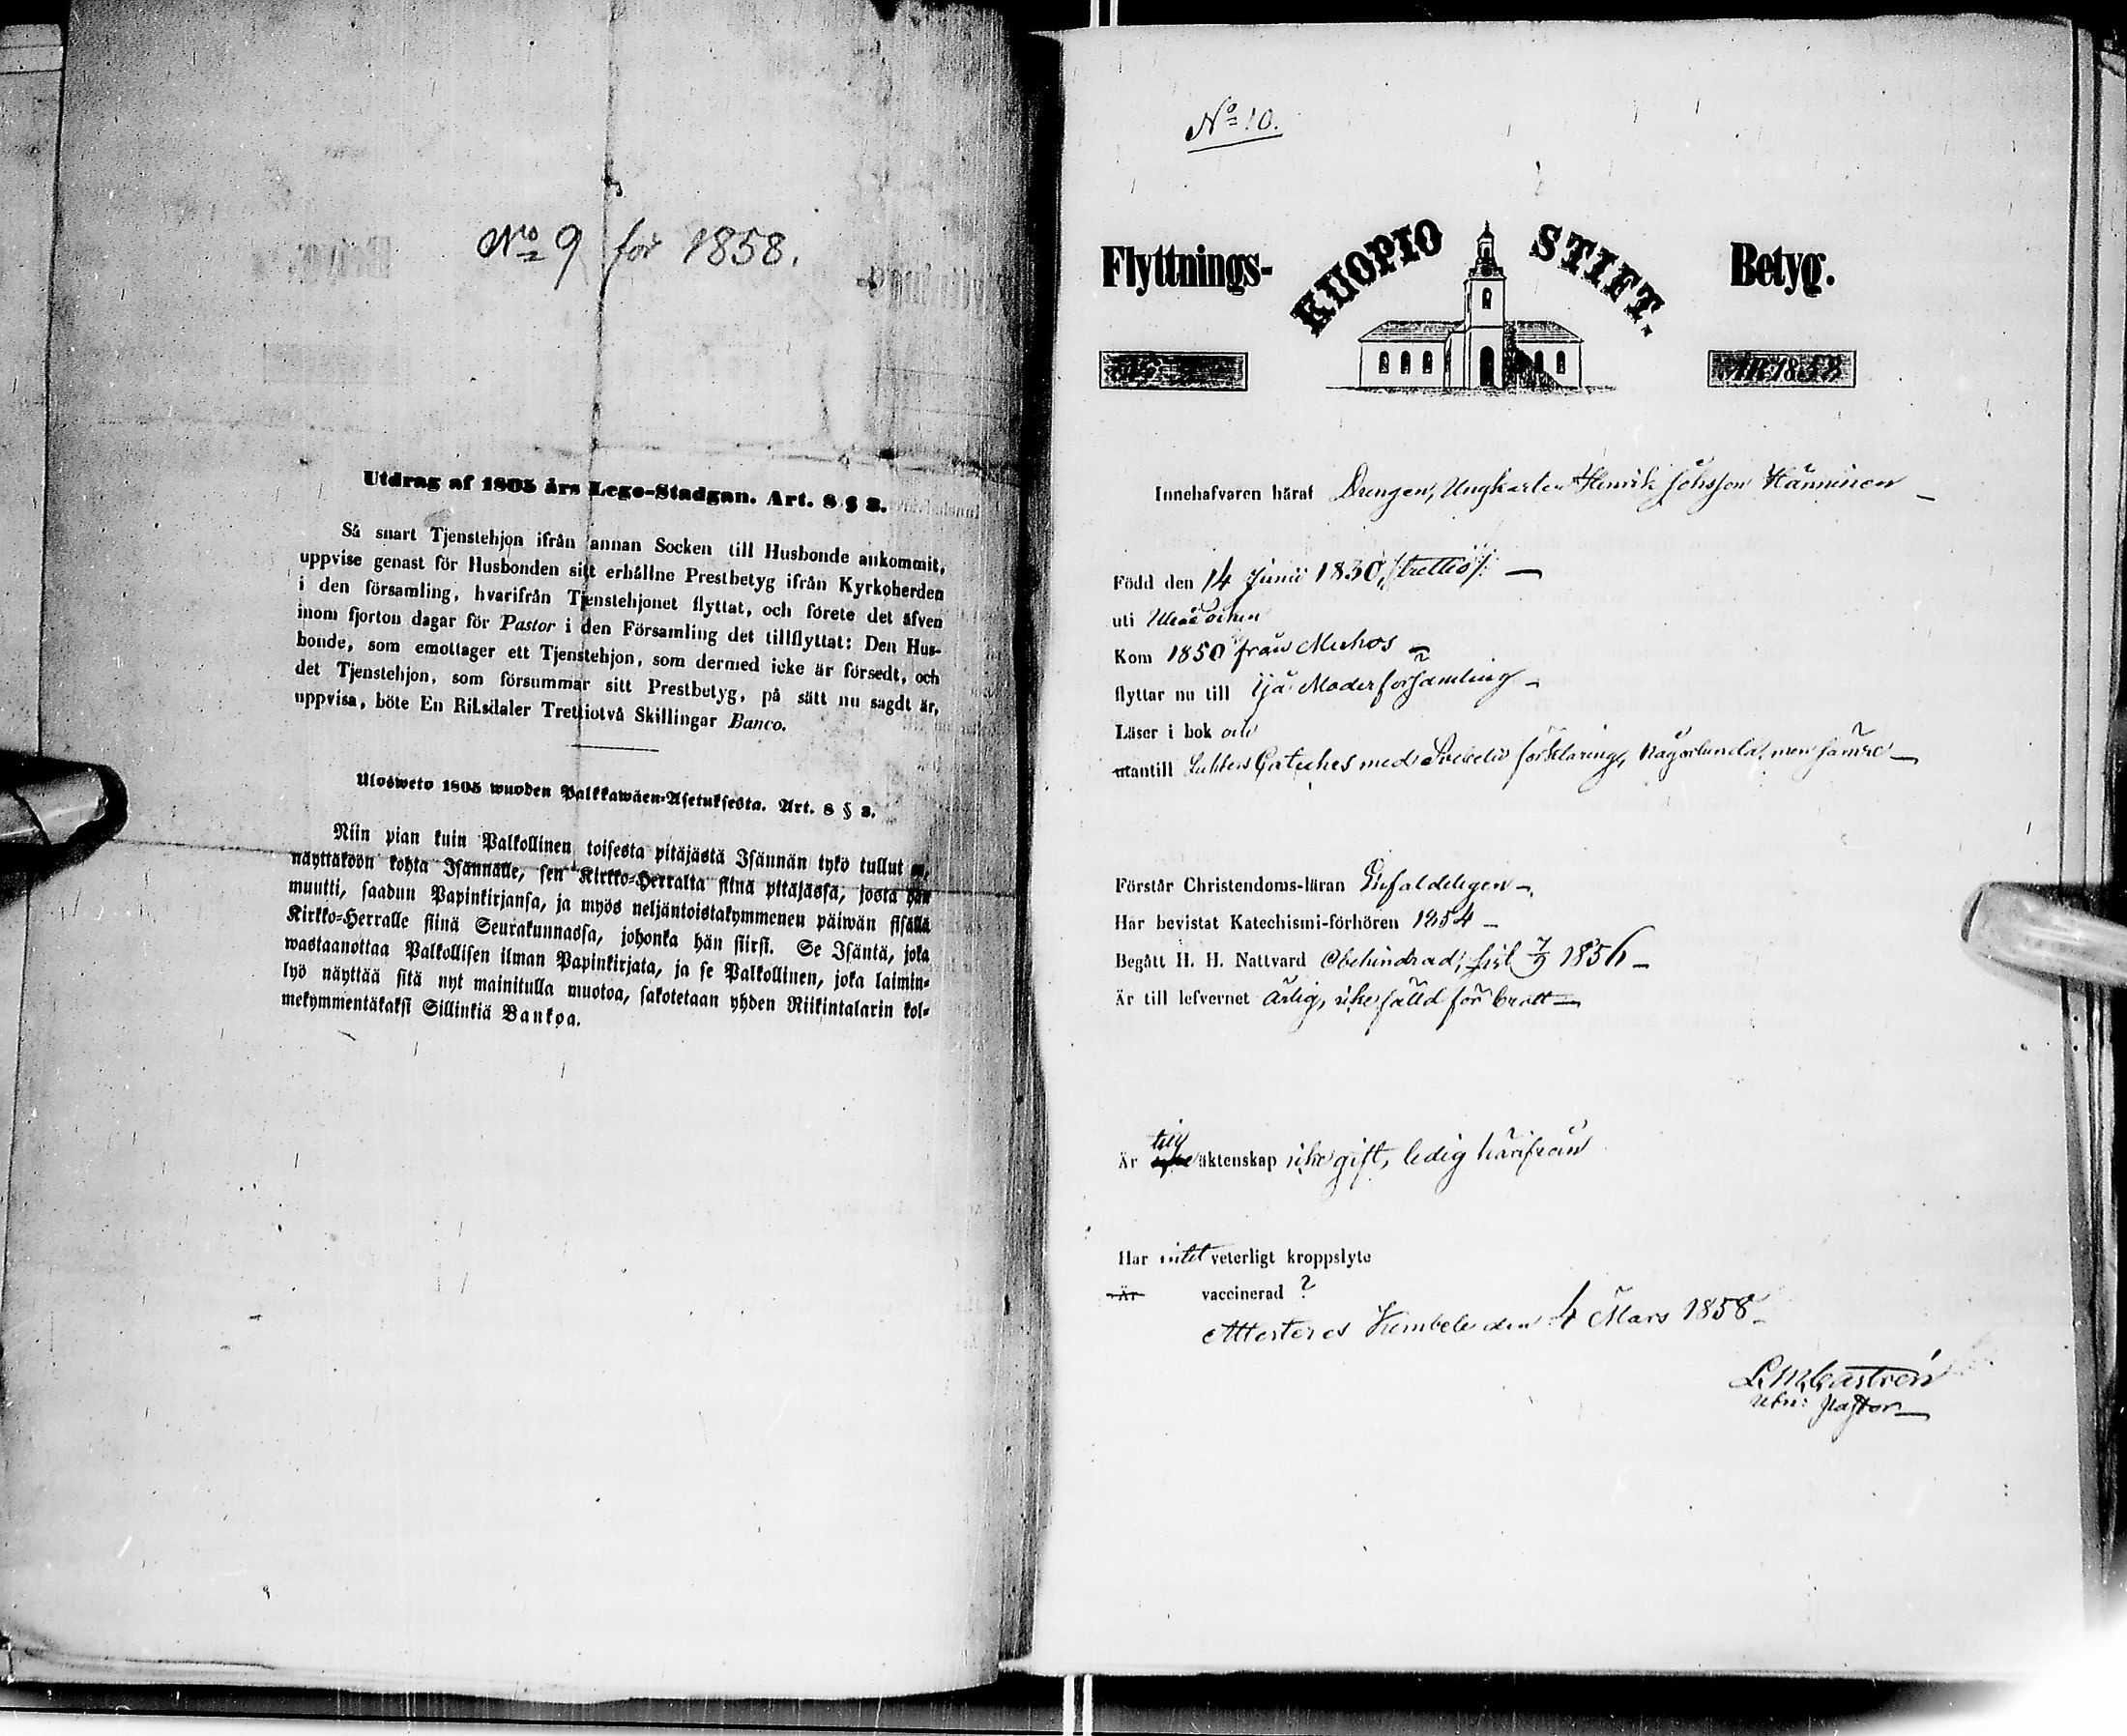 No 9 for 1858.
Utdrag af 1805 års Lego-Stadgan. Art. 8 § 3.
Så snart Tjenstehjon ifrån annan Socken till Husbonde ankommit,
uppvise genast för Husbonden sitt erhållne Prestbetyg ifrån Kyrkoherden
i den församling, hvarifrån Tjenstehjonet flyttat, och förete det äfven
inom fjorton dagar för Pastor i den Församling det tillflyttat: Den Hus-
bonde, som emottager ett Tjenstehjon, som dermed icke är försedt, och
det Tjenstehjon, som försummar sitt Prestbetyg, på sätt nu sagdt är,
uppvisa, böte En Riksdaler Trettiotvå Skillingar Banco.
Ulosweto 1805 wuoden Palkkawäen-Asetuksesta. Art. 8 § 3.
Niin pian kuin Palkollinen toisesta pitäjästä Isännän tykö tullut on,
näyttäköön kohta Isännälle, sen Kirkko-Herralta siinä pitäjässä, josta hän
muutti, saadun Papinkirjansa, ja myös neljäntoistakymmenen päiwän sisällä
Kirkko-Herralle siinä Seurakunnassa, johonka hän siirsi. Se Isäntä, joka
wastaanottaa Palkollisen ilman Papinkirjata, ja se Palkollinen, joka laimin-
lyö näyttää sitä nyt mainitulla muotoa, sakotetaan yhden Riikintalarin kol-
mekymmentäkaksi Sillinkiä Bankoa.
No 10.
Flyttnings- KUOPIO STIFT. Betyg.
ÅR 1858
Innehafvaren häraf Drengen, Ungkarlen Henrik Johsson Hänninen
Född den 14 Junii 1830 /:trettio:/
uti
Kom 1850 från Muhos
flyttar nu till Ijå Moderförsamling
Läser i bok och
utantill Luthers Cateches med Svebelii förklaring, någorlunda, men sämre
Förstår Christendoms-läran Enfaldeligen
Har bevistat Katechismi-förhören 1854
Begått H. H. Nattvard Obehindrad, sist 7/9 1856
Är till lefvernet ärlig, icke fälld för brott
Är till äktenskap icke gift, ledig härifrån
Har intet veterligt kroppslyte
Är vaccinerad ?
Attesteras Kembele den 4 Mars 1858
L. M. Castrén
Pastor